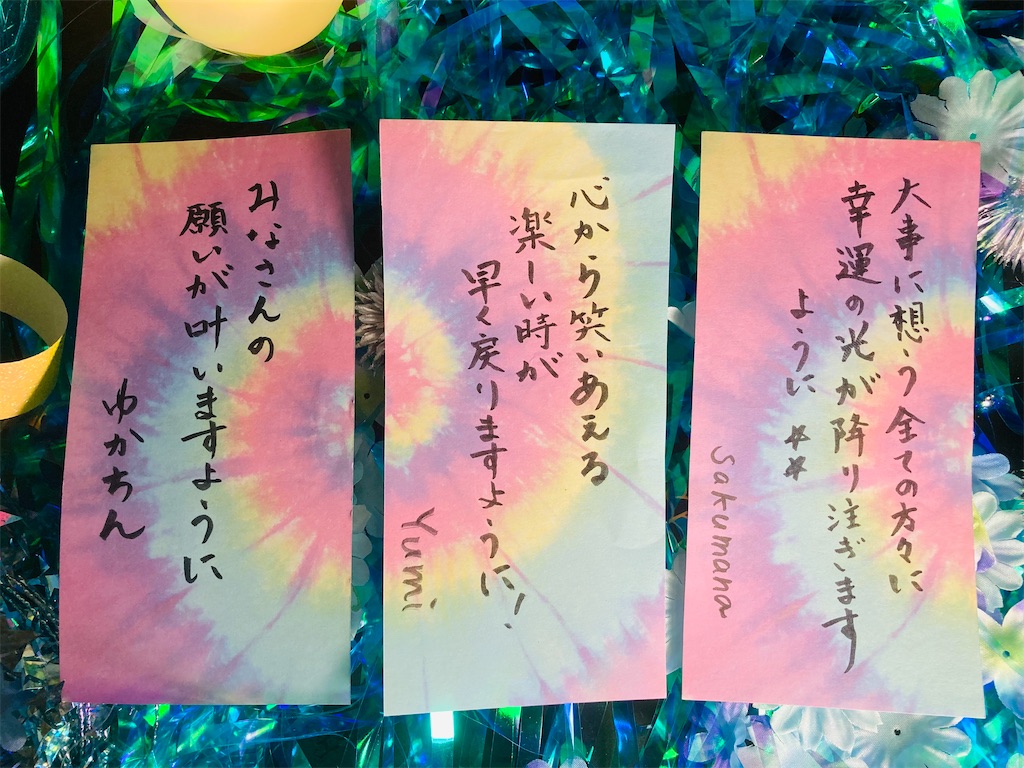 みなさんの
願いが叶いますように
ゆかちん
心から笑いあえる
楽しい時が
早く戻りますように!
Yumi
大事に想う全ての方々に
幸運の光が降り注ぎます
ように **
Sakumana